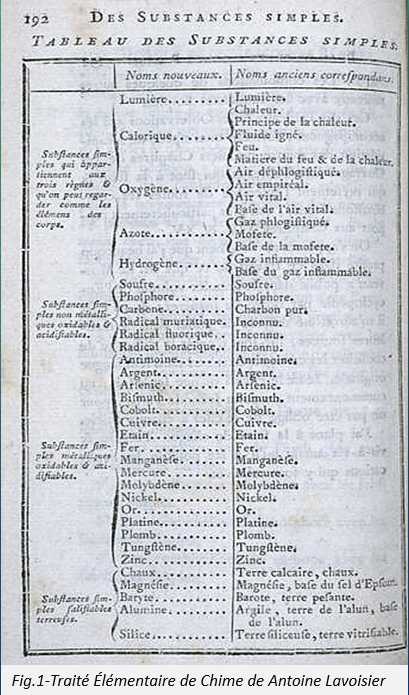 192 DES SUBSTANCES SIMPLES.
TABLEAU DES SUBSTANCES SIMPLES.
Noms nouveaux. Noms anciens correſpondans.
Subſtances ſim-
ples qui appar-
tiennent aux
trois règnes &
qu'on peut regar-
der comme les
élémens des
corps.
Lumière......... Lumière.
Calorique......... Chaleur.
Principe de la chaleur.
Fluide igné.
Feu.
Matière du feu & de la chaleur.
Oxygène......... Air déphlogiſtiqué.
Air empiréal.
Air vital.
Baſe de l'air vital.
Azote......... Gaz phlogiſtiqué.
Mofete.
Baſe de la mofete.
Hydrogène......... Gaz inflammable.
Baſe du gaz inflammable.
Subſtances ſim-
ples non métalli-
ques oxidables &
acidifiables.
Soufre......... Soufre.
Phoſphore......... Phoſphore.
Carbone......... Charbon pur.
Radical muriatique. Inconnu.
Radical fluorique.. Inconnu.
Radical boracique.. Inconnu.
Subſtances ſim-
ples métalliques
oxidables & aci-
difiables.
Antimoine......... Antimoine.
Argent......... Argent.
Arſenic......... Arſenic.
Biſmuth......... Biſmuth.
Cobolt......... Cobolt.
Cuivre......... Cuivre.
Etain......... Etain.
Fer......... Fer.
Manganèſe......... Manganèſe.
Mercure......... Mercure.
Molybdène......... Molybdène.
Nickel......... Nickel.
Or......... Or.
Platine......... Platine.
Plomb......... Plomb.
Tungſtène......... Tungſtène.
Zinc......... Zinc.
Subſtances ſim-
ples ſalifiables
terreuſes.
Chaux......... Terre calcaire, chaux.
Magnéſie......... Magnéſie, baſe du ſel d'Epſom.
Baryte......... Barote, terre peſante.
Alumine......... Argile, terre de l'alun, baſe
de l'alun.
Silice......... Terre ſiliceuſe, terre vitrifiable.
Fig.1-Traité Élémentaire de Chime de Antoine Lavoisier